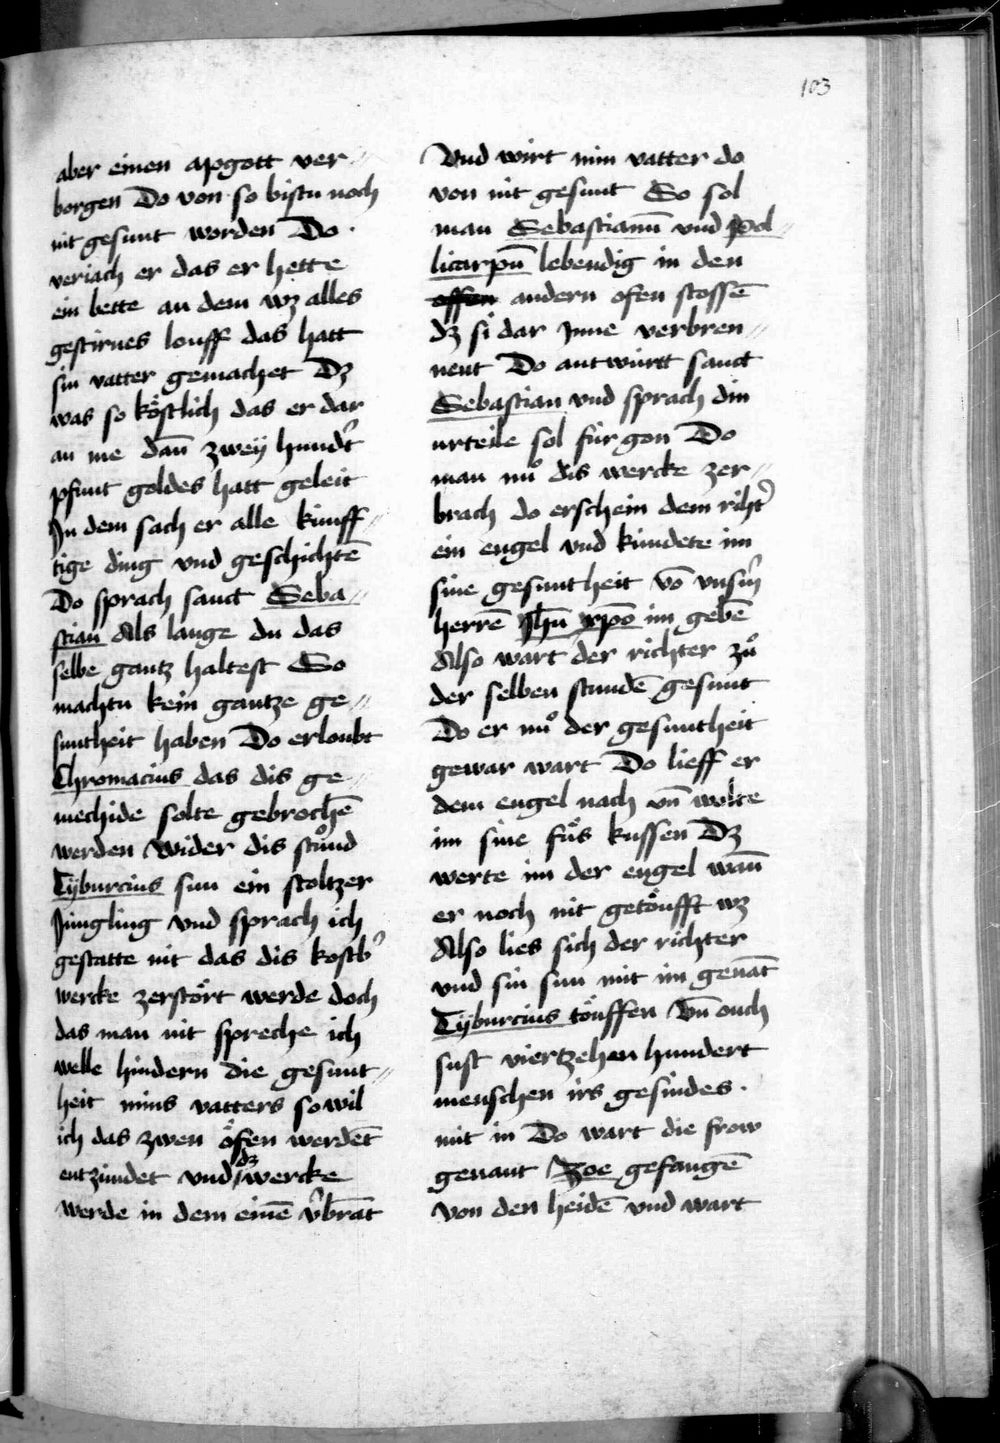 103
aber einen apgott ver⸗
borgen Do von so bistu noch
nit gesunt worden Do ·
veriach er das er hette
ein bette an dem wz alles
gestirnes louff das hatt
sin vatter gemachet Dz
was so köstlich das er dar
an me dan̄ zwey hundt᷑
pfunt goldes hatt geleit
In dem sach er alle kunff⸗
tige ding vnd geschichtē
Do sprach sanct Seba⸗
stian Als lange du das
selbe gantz haltest So
machtu kein gantze ge⸗
suntheit haben Do erloubt
Chromacius das dis ge⸗
mechide solte gebrochē
werden Wider dis stůnd
Tyburcius sun ein stoltzer
Jungling vnd sprach ich
gestatte nit das dis kostb᷑
wercke zerstört werde doch
das man nit spreche ich
welle hindern die gesunt⸗
heit mins vatters so wil
ich das zwen öfen werdēt
entzündet vnd dz wercke
werde in dem einē v᷑brāt
Vnd wirt min vatter do
von nit gesunt So sol
man Sebastianū vnd Pol⸗
licarpū lebendig in den
offen andern ofen stossē
dz si dar Inne verbren⸗
nent Do antwürtt sanct
Sebastian vnd sprach din
urteile sol für gon Do
man nů dis wercke zer⸗
brach do erschein dem riht᷑
ein engel vnd kündete im
sine gesuntheit vō vnsm᷑
herrē Jhū xp̄o im gebē
Also wart der richter zů
der selben stundē gesunt
Do er nů der gesuntheit
gewar wart Do lieff er
dem engel nach vn̄ wolte
im sine füs kussen Dz
werte im der engel wan̄
er noch nit getöufft wz
Also lies sich der richter
vnd sin sun mit im genāt
Tyburcius töuffen Vn̄ ouch
sust viertzehen hundert
menschen irs gesindes ·
mit in Do wart die frow
genant Zoe gefangē
von den heidē vnd wart